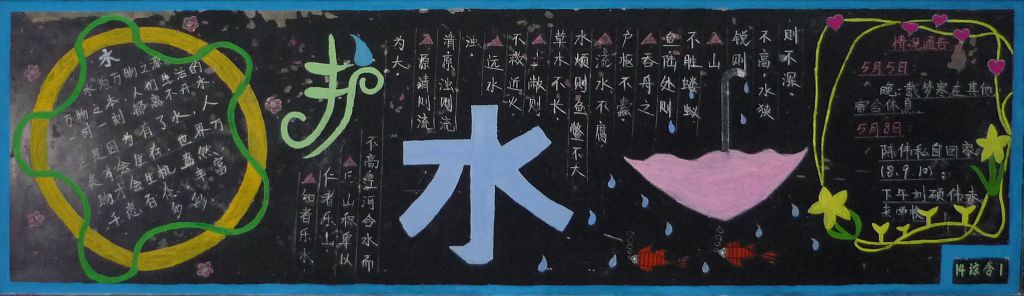 水
水为万物之源
万物之本，人们生活的
时时刻刻都离不开水，
正是因为有了水，世界万
物才会生机盎然
护
水
则不深。
不高，水狭
锐则
山
不胜蹉跎
鱼两处则
吞舟之
户枢不蠹
流水不腐
水烦则鱼鳖不大
草木不长，
土敝则
不救近火
远水
浊。
清原浊则流
原清则流
为大。
不高江河合水而
丘山积卑以
仁者乐山
知者乐水
情况通告
5月5日：
晚：戴梦寒在其他
宿舍休息
5月8日：
陈伟私自回家
(8.9.10)；
下午刘硕伟未
来画板
14综合1